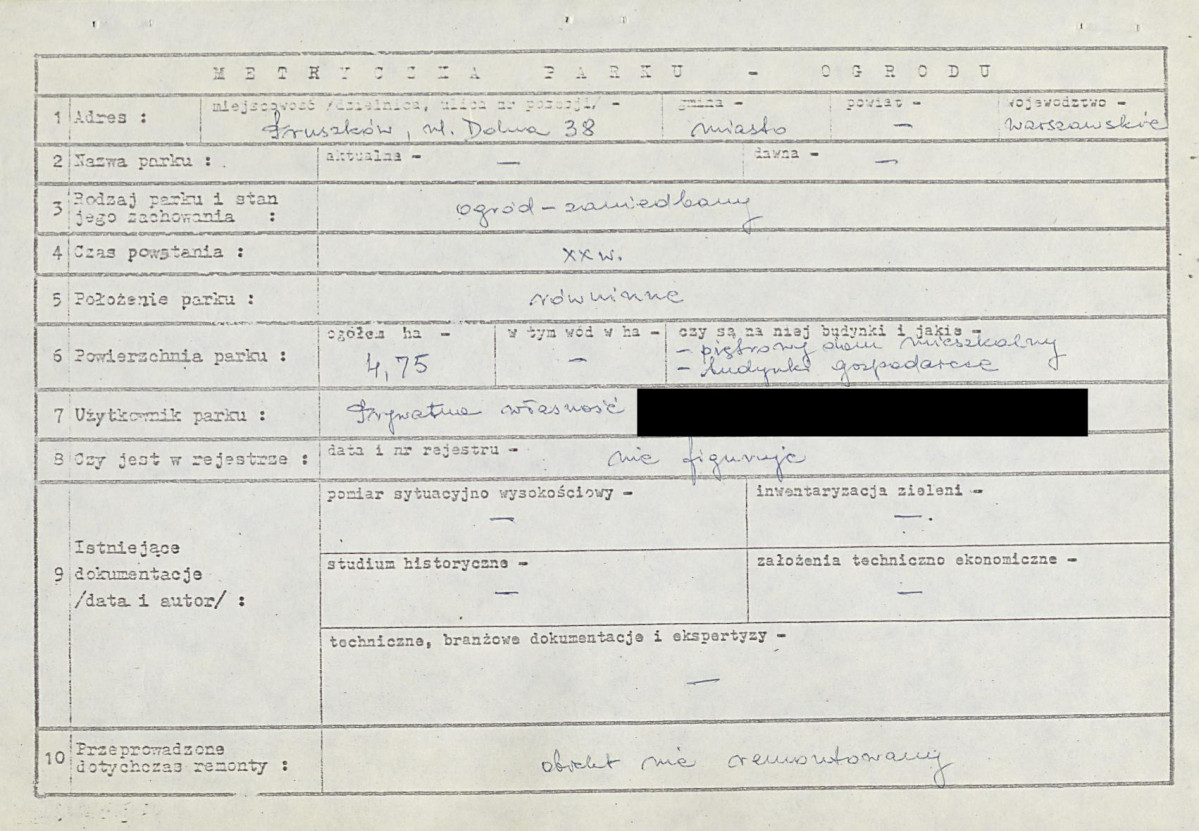 METRYCZKA PARKU - OGRODU
1 Adres : miejscowość /dzielnica, ulica nr posesji/ - gmina - powiat - województwo -
Pruszków, ul. Dolna 38 miasto — warszawskie
2 Nazwa parku : aktualna - — dawna - —
3 Rodzaj parku i stan
jego zachowania : ogród - zaniedbany
4 Czas powstania : XX w.
5 Położenie parku : równinne
6 Powierzchnia parku : ogółem ha - w tym wód w ha - czy są na niej budynki i jakie -
4,75 — - piętrowy dom mieszkalny
- budynki gospodarcze
7 Użytkownik parku : Prywatna własność
8 Czy jest w rejestrze : data i nr rejestru - nie figuruje
9 Istniejące
dokumentacje
/data i autor/ :
pomiar sytuacyjno wysokościowy - inwentaryzacja zieleni -
— —.
studium historyczne - założenia techniczno ekonomiczne -
— —
techniczne, branżowe dokumentacje i ekspertyzy -
—
10 Przeprowadzone
dotychczas remonty : obiekt nie remontowany